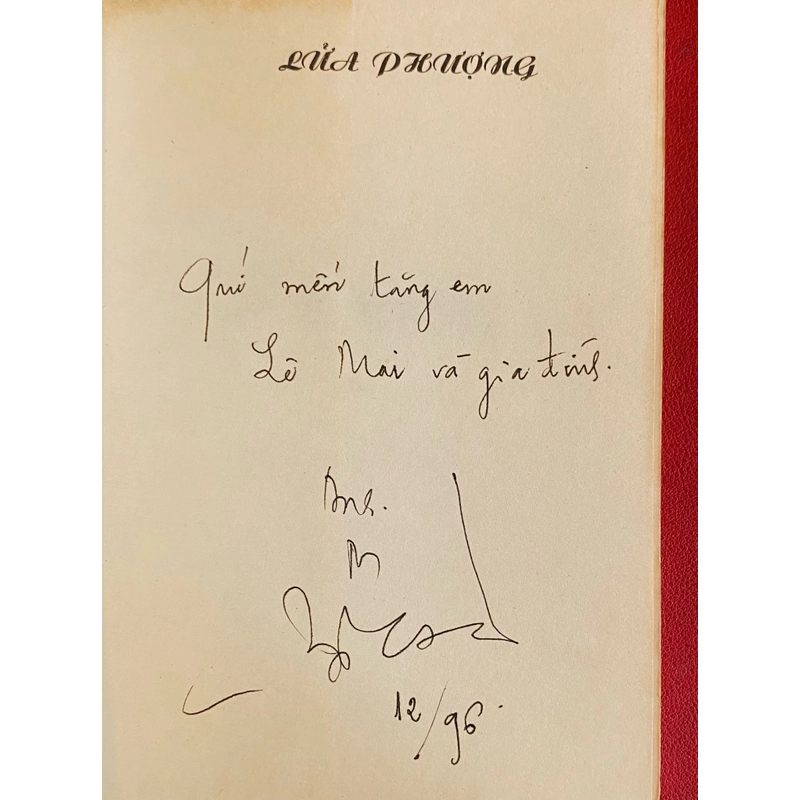 LỬA PHƯỢNG
Quí mến tặng em
Lê Mai và gia đình.
Anh.
12/96.